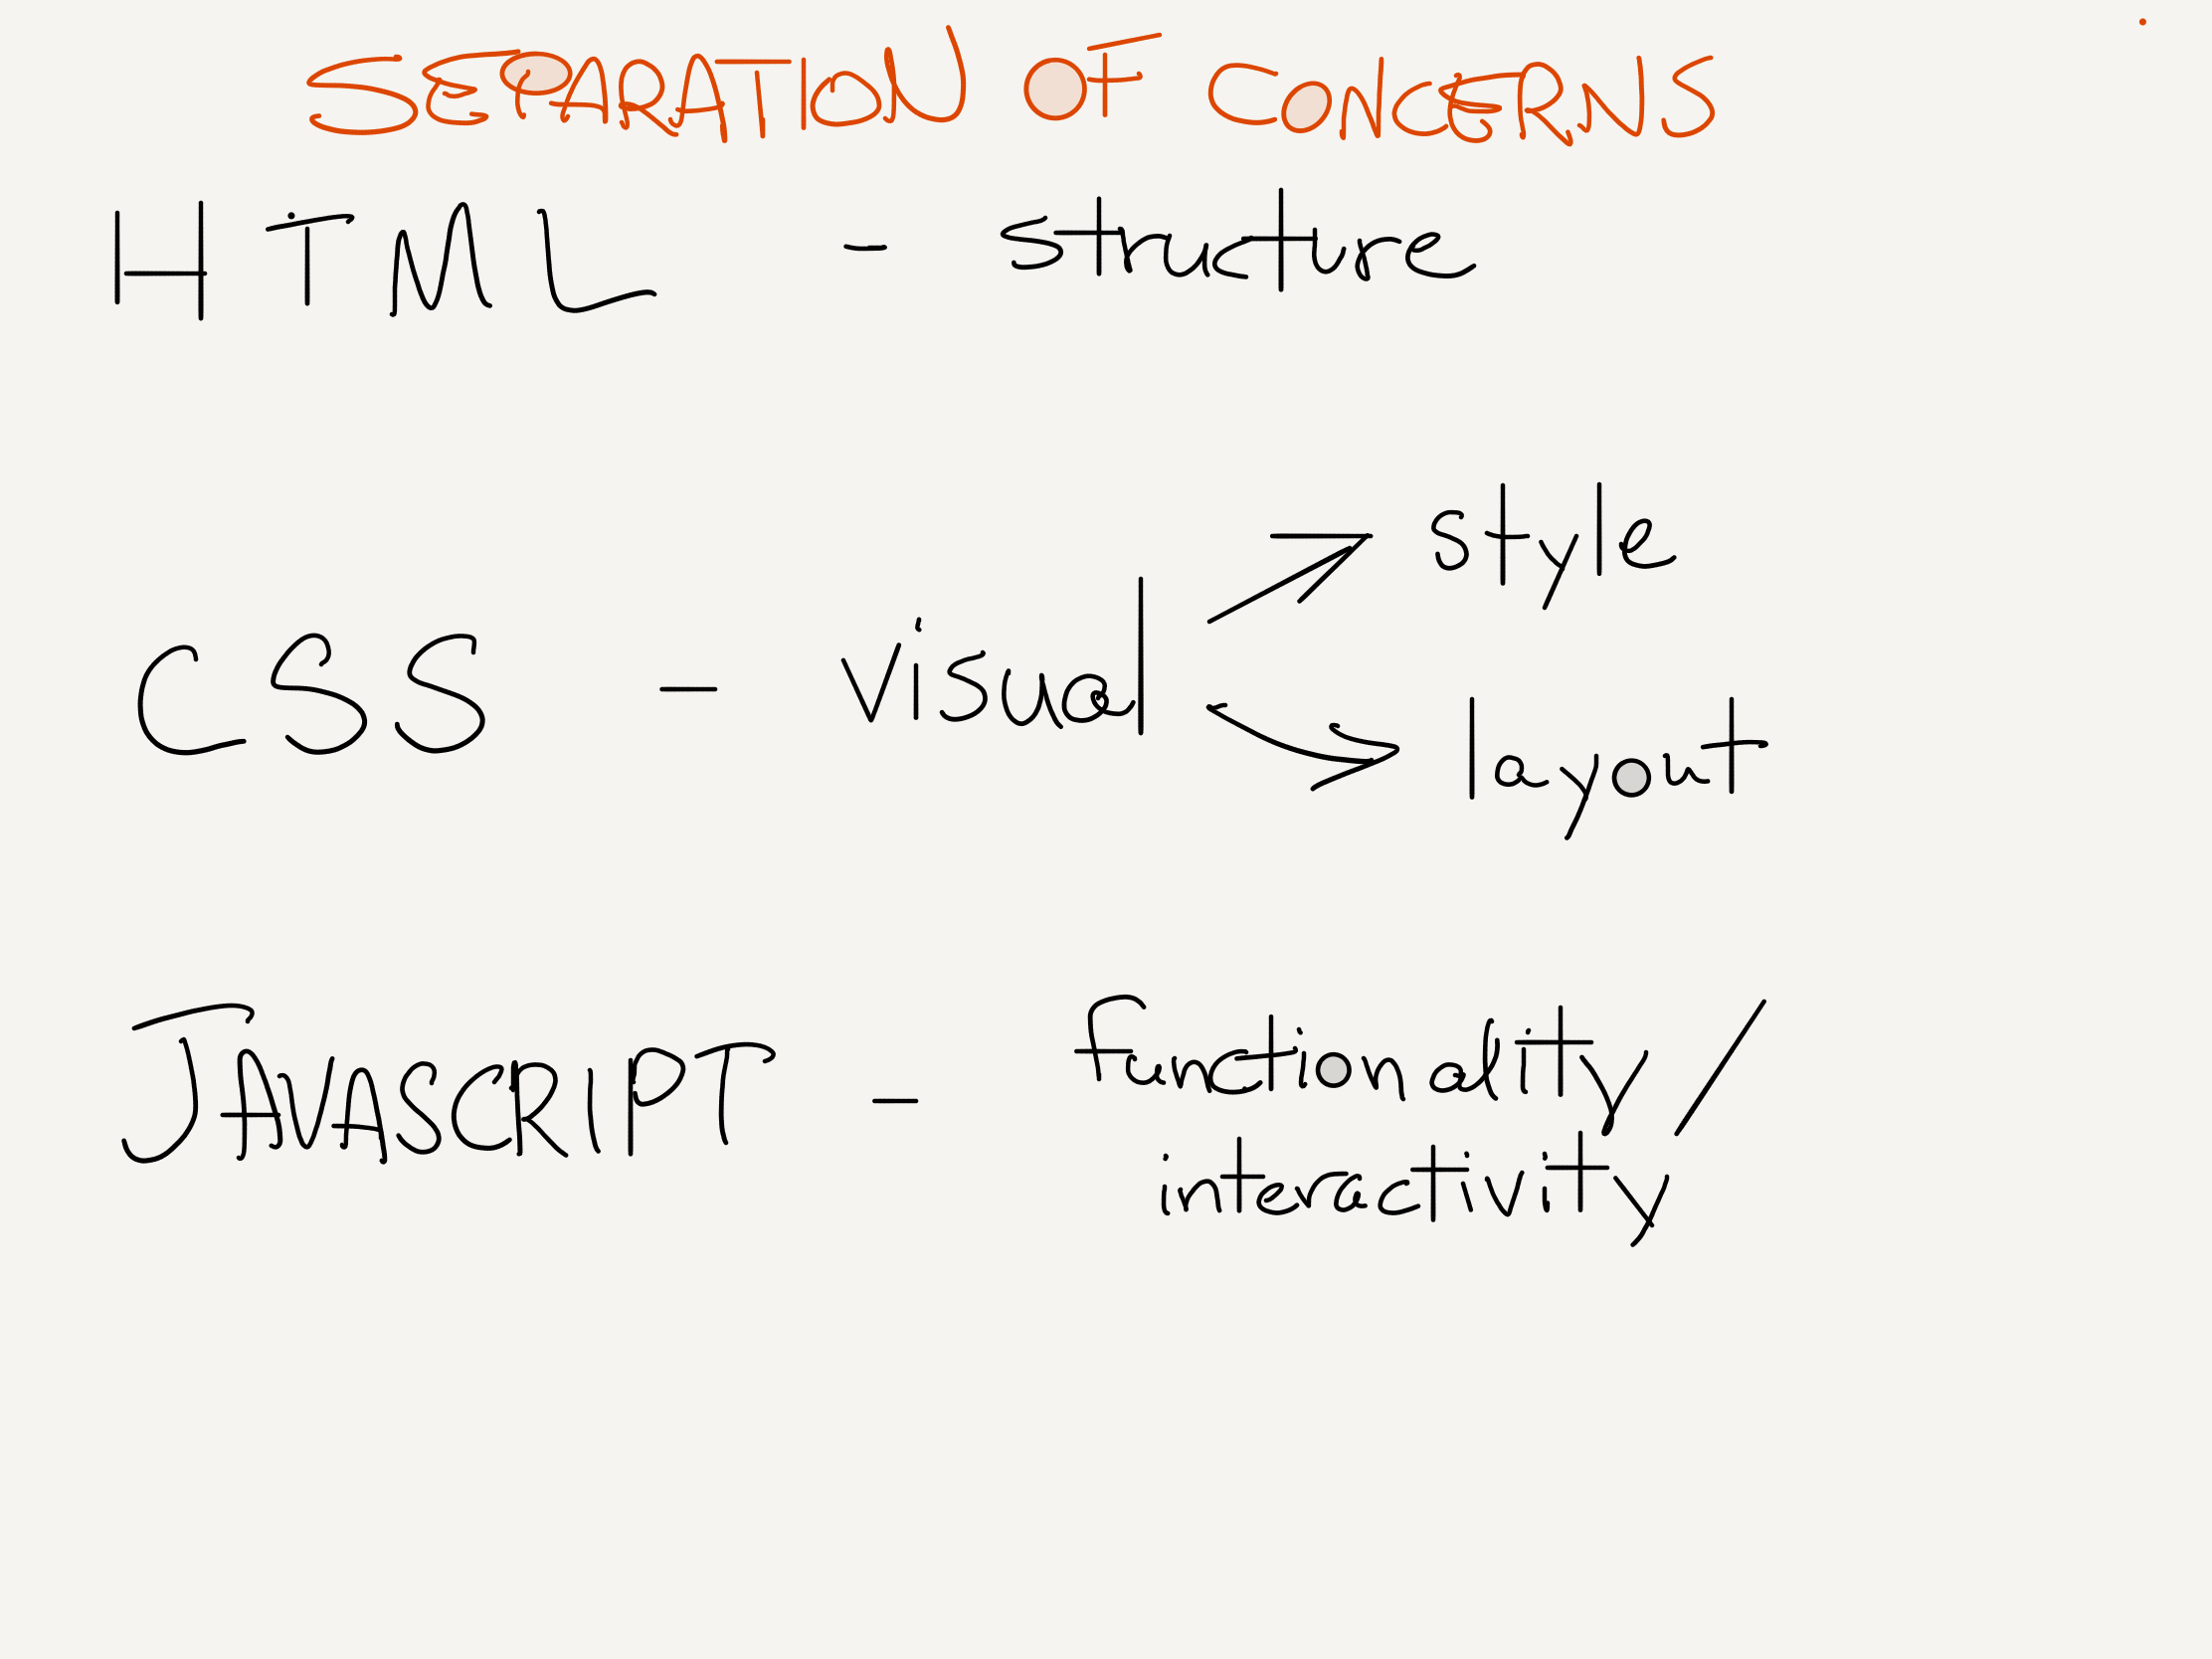 SEPARATION OF CONCERNS
HTML - structure
style
CSS - visual
layout
JAVASCRIPT - functionality/
interactivity